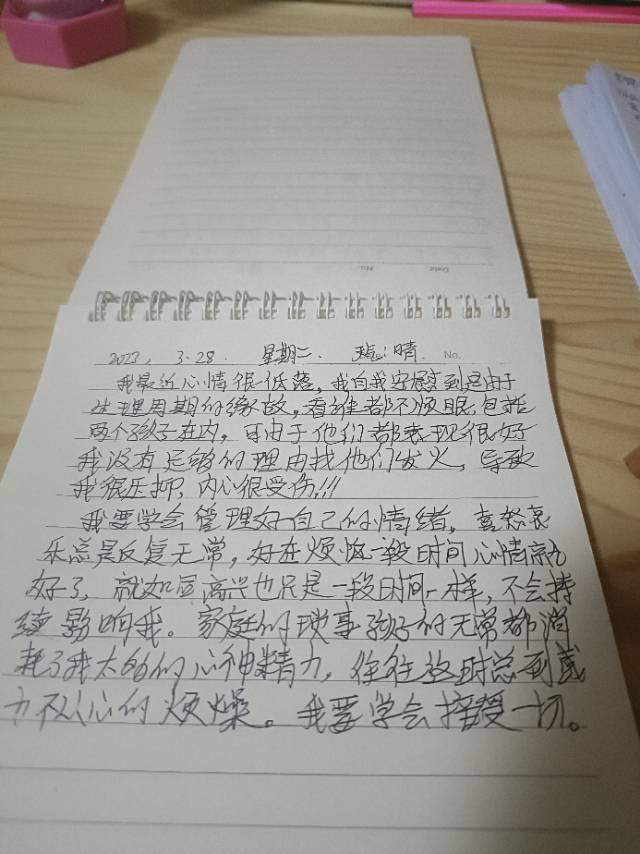 2023, 3.28. 星期二. 晴. No.
我最近心情很低落,我自我安慰到是由于
生理周期的缘故,看谁都不顺眼包括
两个孩子在内,可由于他们都表现很好
我没有足够的理由找他们发火,导致
我很压抑,内心很受伤!!!
我要学会管理好自己的情绪,喜怒哀
乐总是反复无常,好在烦恼一段时间心情就
好了,就如同高兴也只是一段时间一样,不会持
续影响我。家庭的琐事孩子的无常都消
耗了我太多的心神精力,往往这时总到
力不从心的烦燥。我要学会接受一切。
Date
No.